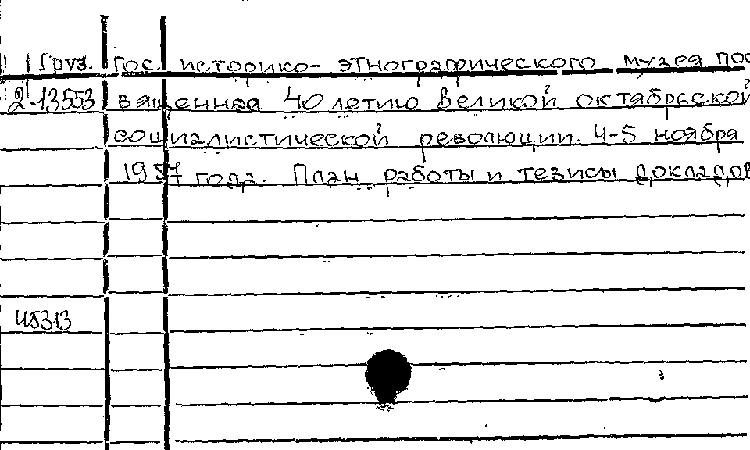 Груз. Гос. историко- этнографического музея пос
2-13553 вященная 40 летию Великой октябрьской
социалистической революции. 4-5 ноября
1957 года. План работы и тезисы докладов